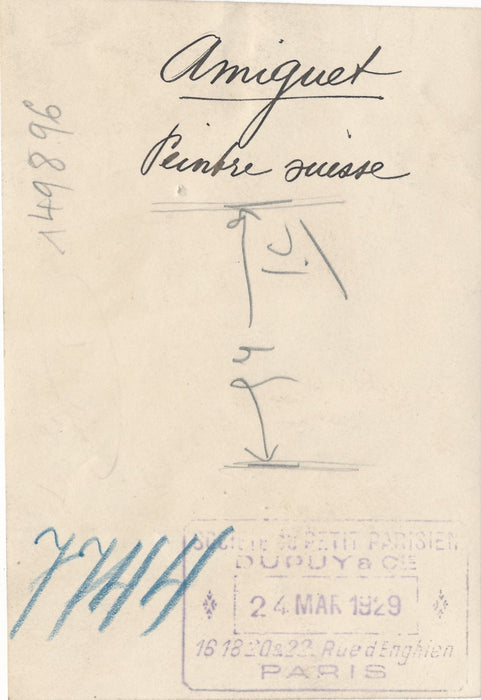 Amiguet
Peintre suisse
149896
7744
SOCIÉTÉ DU PETIT PARISIEN
DUPUY & CIE
24 MAR 1929
16 18 20 & 22. Rue d'Enghien
PARIS